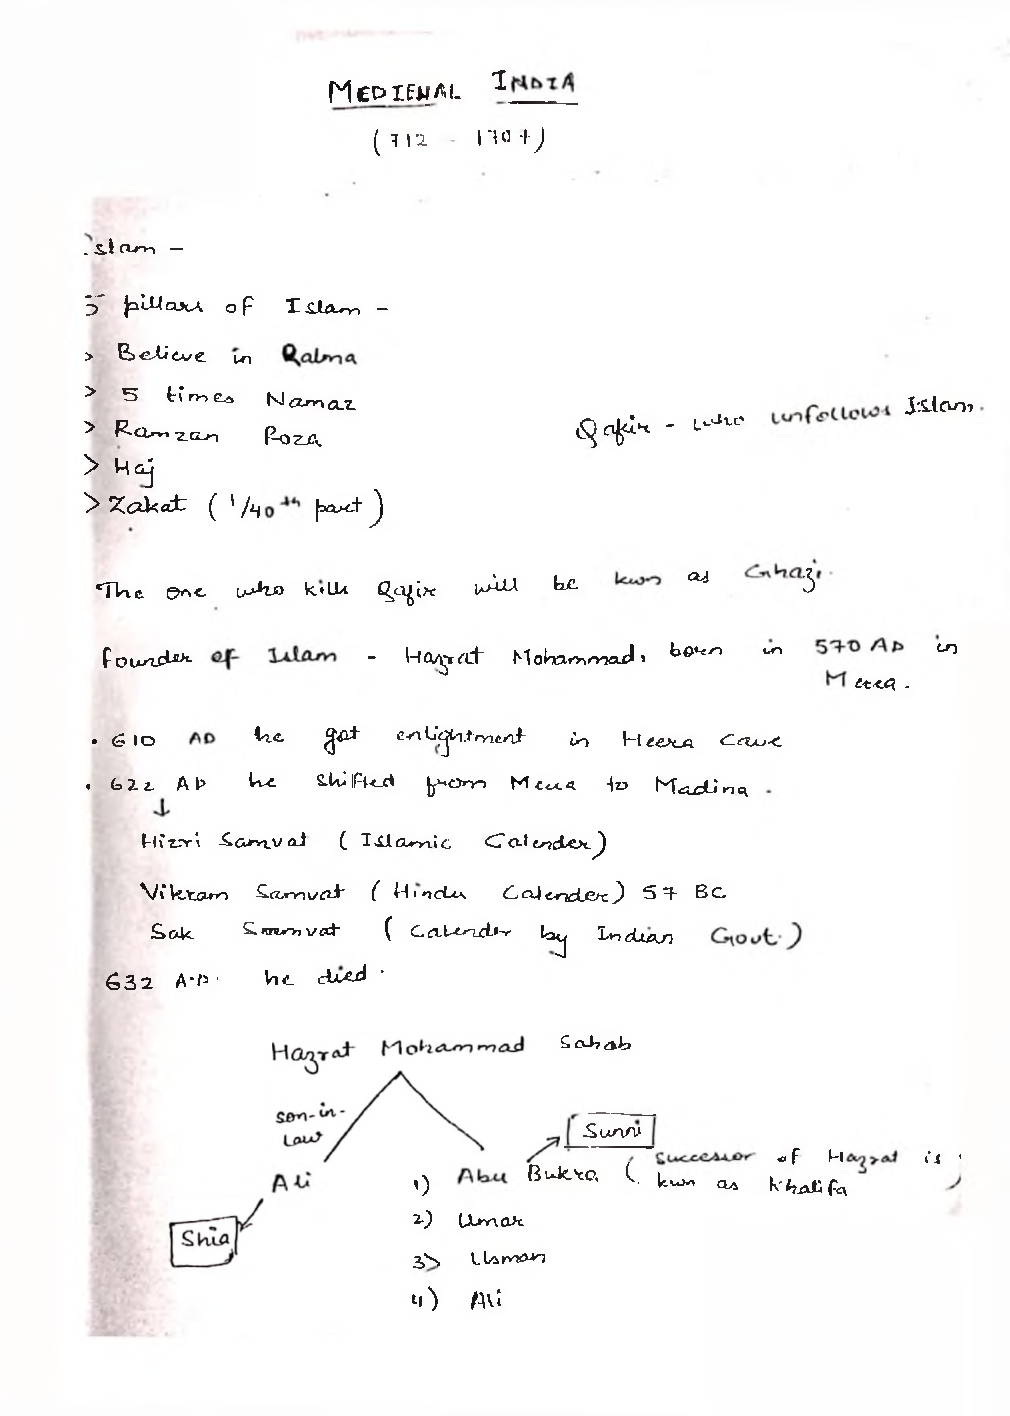 MEDIEVAL INDIA
(712 - 1707)
Islam -
5 pillars of Islam -
> Believe in Qalma
> 5 times Namaz
Qafir - who unfollows Islam.
> Ramzan Roza
> Haj
> Zakat (1/40th part)
The one who kills Qafir will be kwn as Ghazi.
founder of Islam - Hazrat Mohammad, born in 570 AD in
Mecca.
• 610 AD he got enlightment in Heera Cave
• 622 AD he shifted from Mecca to Madina.
↓
Hizri Samvat (Islamic Calender)
Vikram Samvat (Hindu Calender) 57 BC
Sak Samvat (Calender by Indian Govt.)
632 A.D. he died.
Hazrat Mohammad Sahab
son-in-
law
Sunni
Ali
1) Abu Bukra (successor of Hazrat is
kwn as Khalifa)
2) Umar
Shia
3) Usman
4) Ali